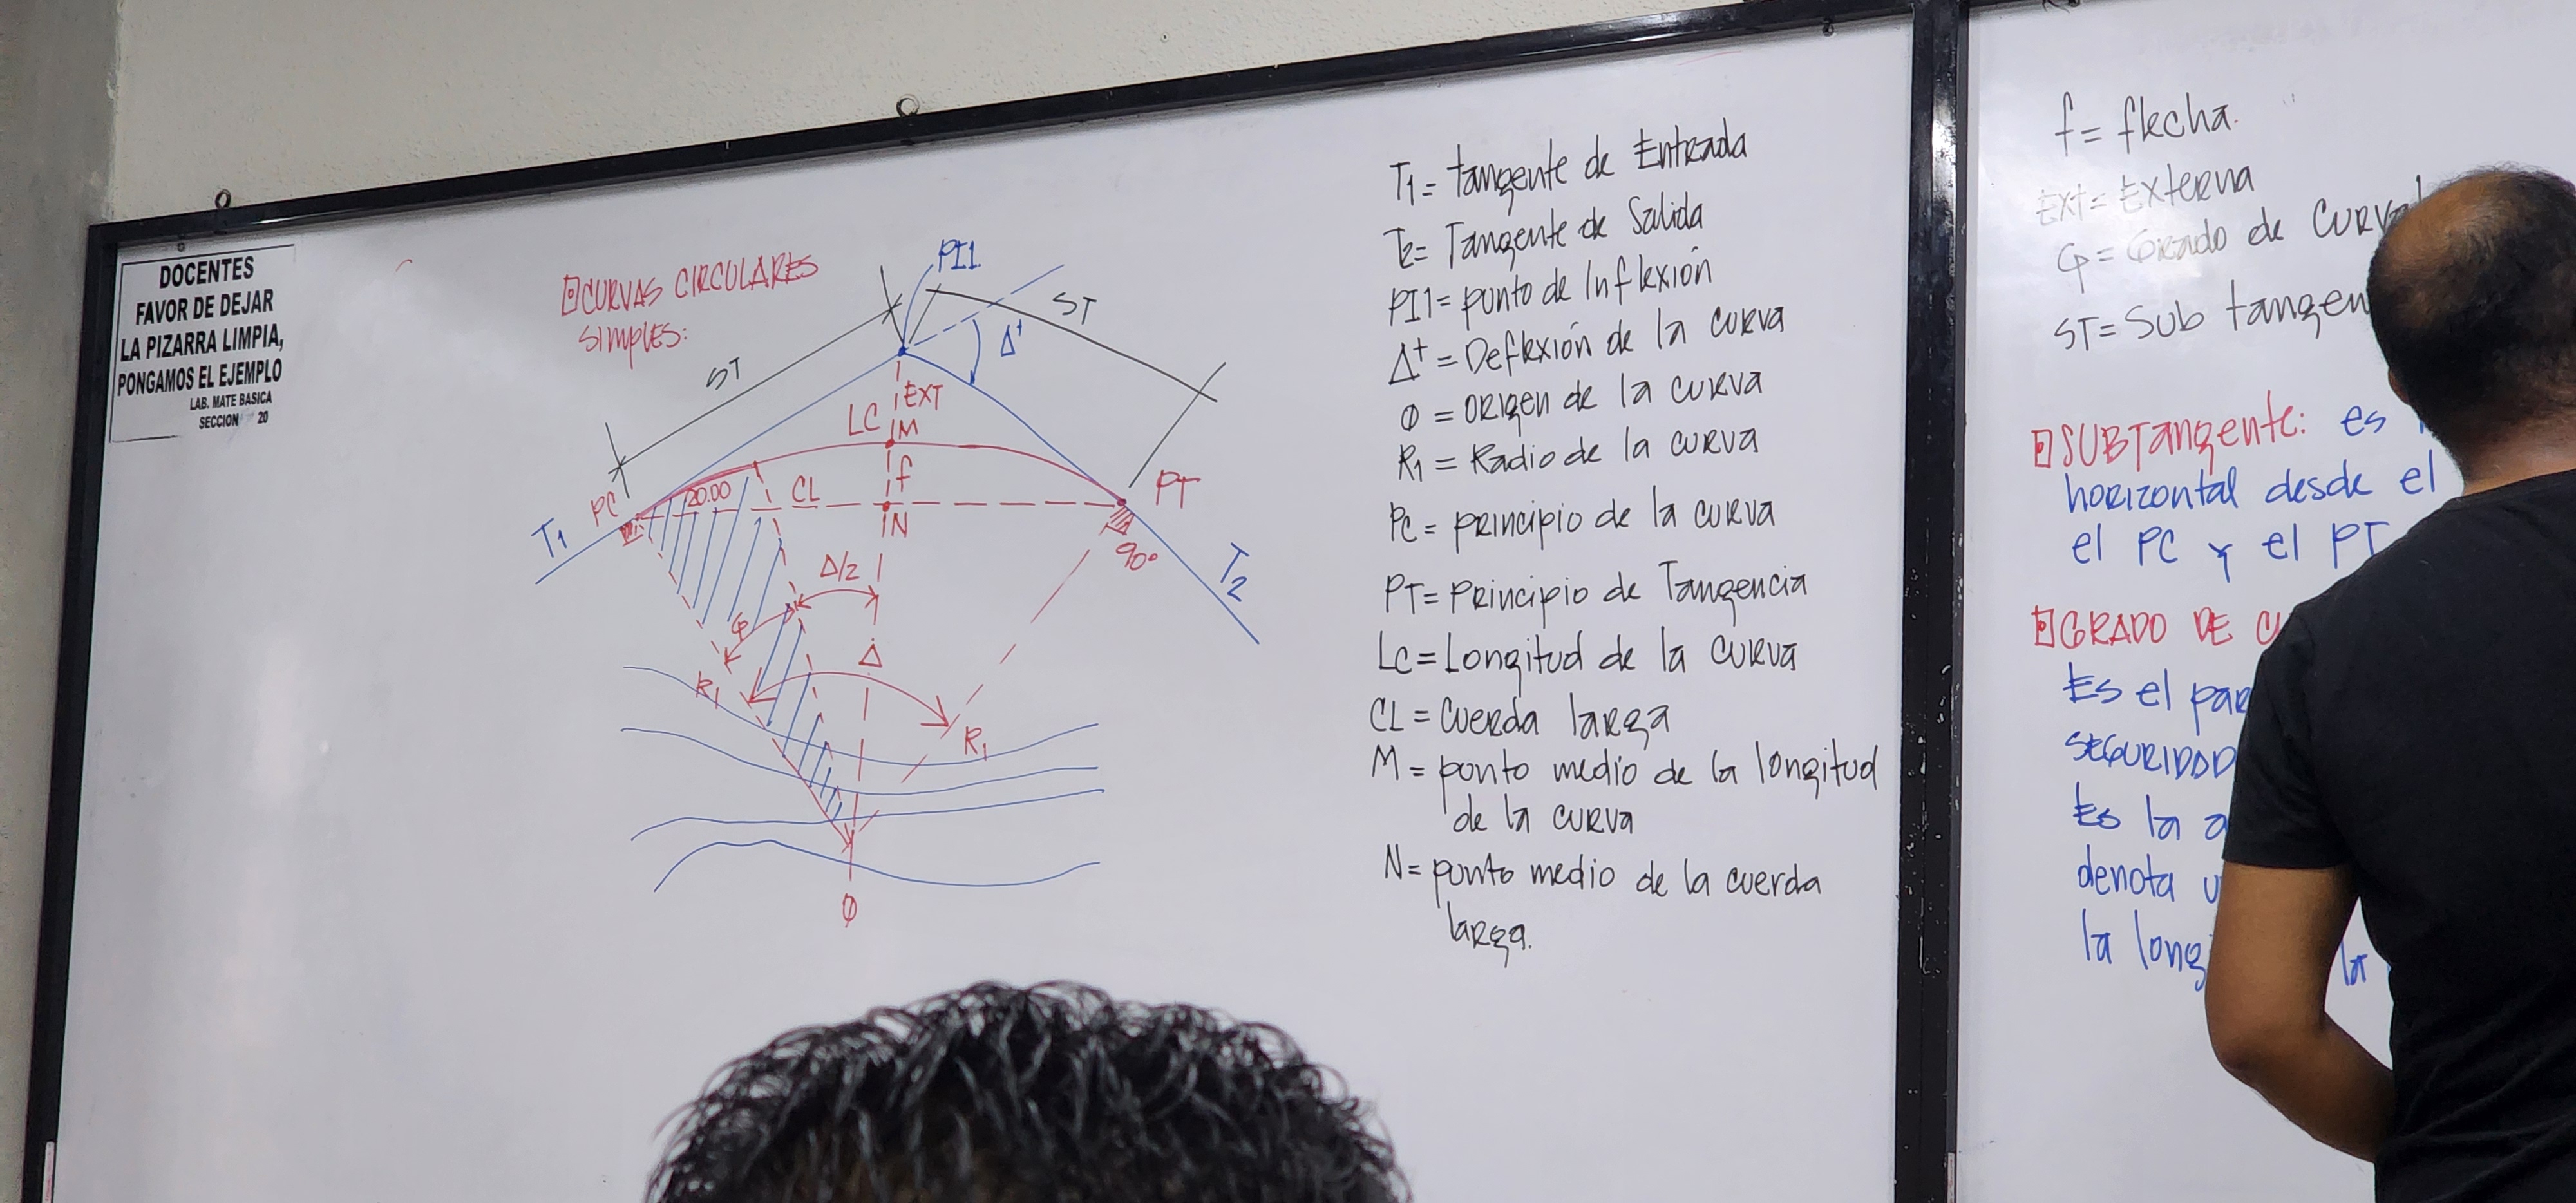 DOCENTES
FAVOR DE DEJAR
LA PIZARRA LIMPIA,
PONGAMOS EL EJEMPLO
LAB. MATE BASICA
SECCION 20
CURVAS CIRCULARES
SIMPLES:
PI1
ST
ST
Δ+
EXT
LC
M
f
20.00
CL
N
PC
PT
T1
90°
T2
Δ/2
G
Δ
R1
R1
Φ
T1= tangente de Entrada
T2= Tangente de Salida
PI1= punto de Inflexión
Δ+ = Deflexión de la curva
Φ = Origen de la curva
R1 = Radio de la curva
PC = principio de la curva
PT= Principio de Tangencia
LC=Longitud de la curva
CL = Cuerda larga
M = punto medio de la longitud
de la curva
N= punto medio de la cuerda
larga.
f= flecha.
Ext= Externa
G = Grado de
ST= Sub
SUBTangente: es
horizontal desde el
el PC y el PT
GRADO DE
Es el
SEGURIDAD
Es la
denota
la
la